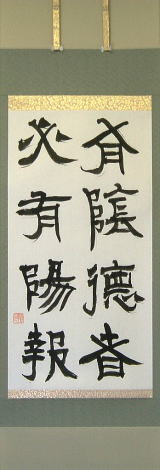 有陰德者
必有陽報